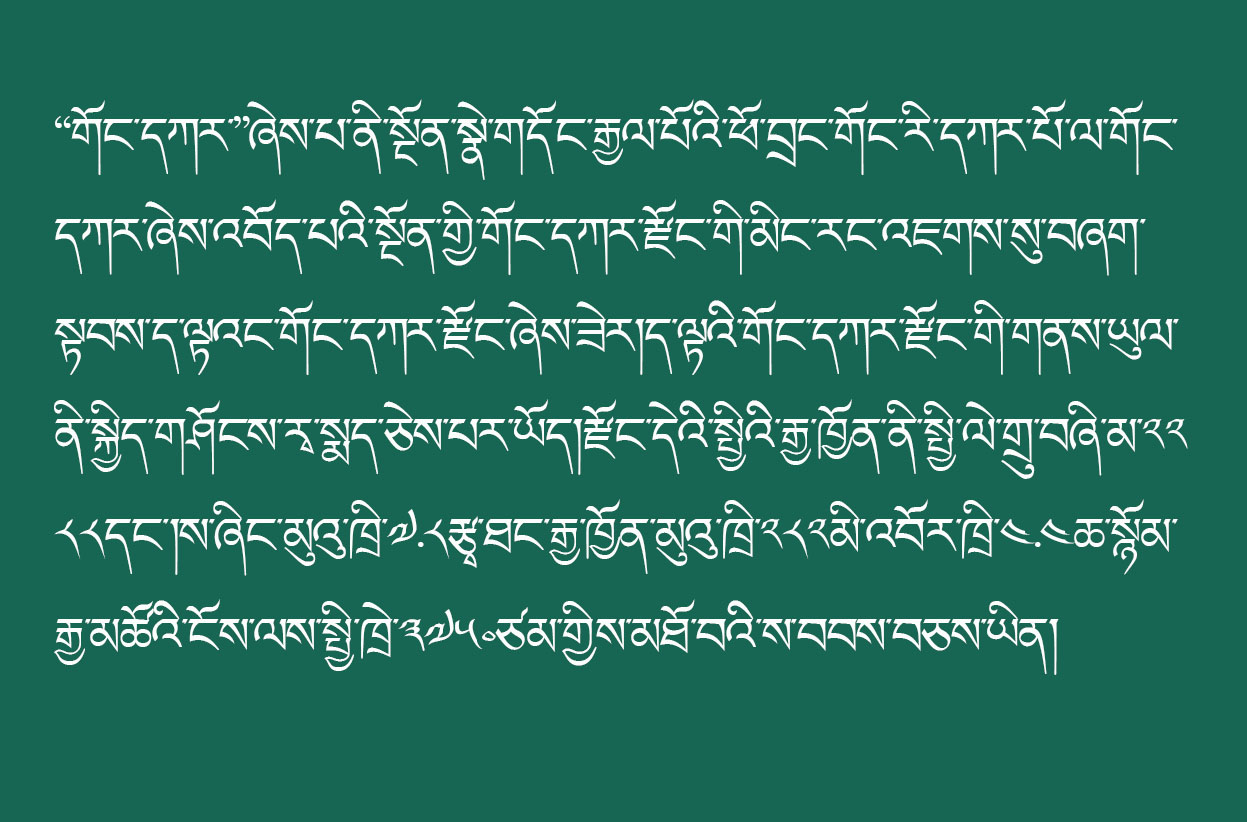 “གོང་དཀར་”ཞེས་པ་ནི་སྔོན་སྣེ་གདོང་རྒྱལ་པོའི་ཕོ་བྲང་གོང་རི་དཀར་པོ་ལ་གོང་
དཀར་ཞེས་འབོད་པའི་སྔོན་གྱི་གོང་དཀར་རྫོང་གི་མིང་རང་འཇགས་སུ་བཞག་
སྟབས་ད་ལྟའང་གོང་དཀར་རྫོང་ཞེས་ཟེར།ད་ལྟའི་གོང་དཀར་རྫོང་གི་གནས་ཡུལ་
ནི་སྐྱིད་གཤོངས་རྭ་སྨད་ཅེས་པར་ཡོད།རྫོང་དེའི་སྤྱིའི་རྒྱ་ཁྱོན་ནི་སྤྱི་ལེ་གྲུ་བཞི་མ་༢༢
༨༨དང་།ས་ཞིང་མུའུ་ཁྲི་༧.༨རྩྭ་ཐང་རྒྱ་ཁྱོན་མུའུ་ཁྲི་༢༨༢མི་འབོར་ཁྲི་༤.༤ཆ་སྙོམ་
རྒྱ་མཚོའི་ངོས་ལས་སྤྱི་ཁྲེ་༣༧༥༠ཙམ་གྱིས་མཐོ་བའི་ས་བབས་བཅས་ཡིན།